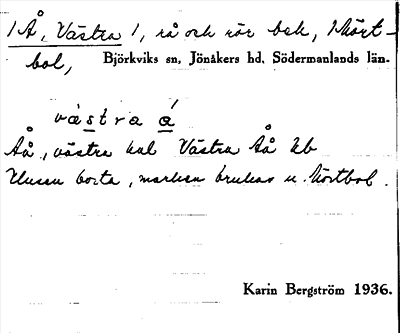 /Å, Västra/, rå och rör bek, Kört-
bol, Björkviks sn, Jönåkers hd. Södermanlands län.
västra å
Åå, västra kal Västra Åå kb
Husen borta, marken brukas u. Körtbol.
Karin Bergström 1936.